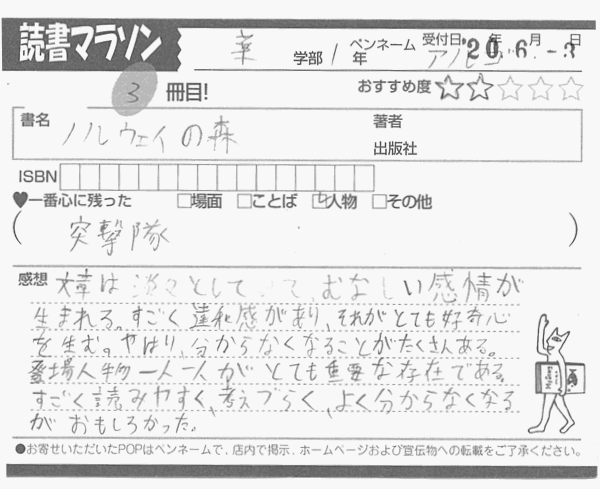 読書マラソン
薬 学部 1 年 ペンネーム アルゴ 受付日 '20 年 6 月 -3 日
3 冊目! おすすめ度 ★★☆☆☆
書名 ノルウェイの森 著者
出版社
ISBN
♥一番心に残った □場面 □ことば ☑人物 □その他
( 突撃隊 )
感想 文章は淡々としていて、むなしい感情が
生まれる。すごく違和感があり、それがとても好奇心
を生む。やはり、分からなくなることがたくさんある。
登場人物一人一人がとても重要な存在である。
すごく読みやすく、考えづらく、よく分からなくなる
がおもしろかった。
●お寄せいただいたPOPはペンネームで、店内で掲示、ホームページおよび宣伝物への転載をご了承ください。